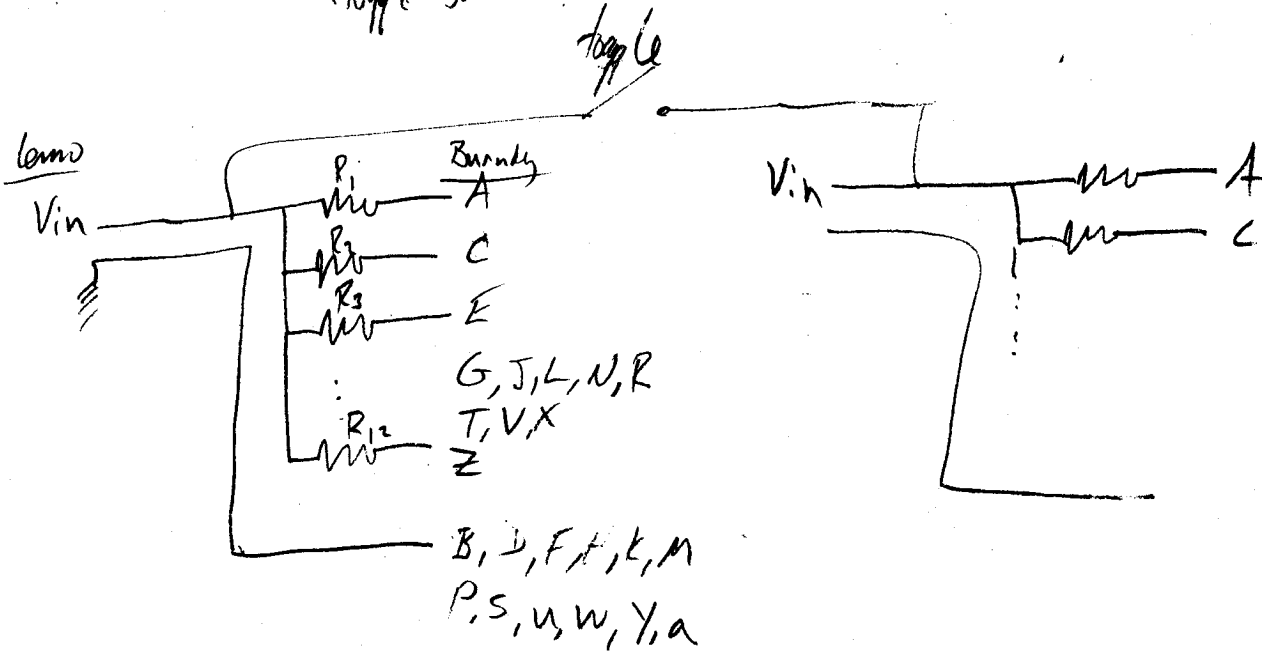 toggle
lemo
Burndy
Vin
R1
A
R2
C
R3
E
G, J, L, N, R
T, V, X
R12
Z
B, D, F, H, K, M
P, S, U, W, Y, a
Vin
A
C